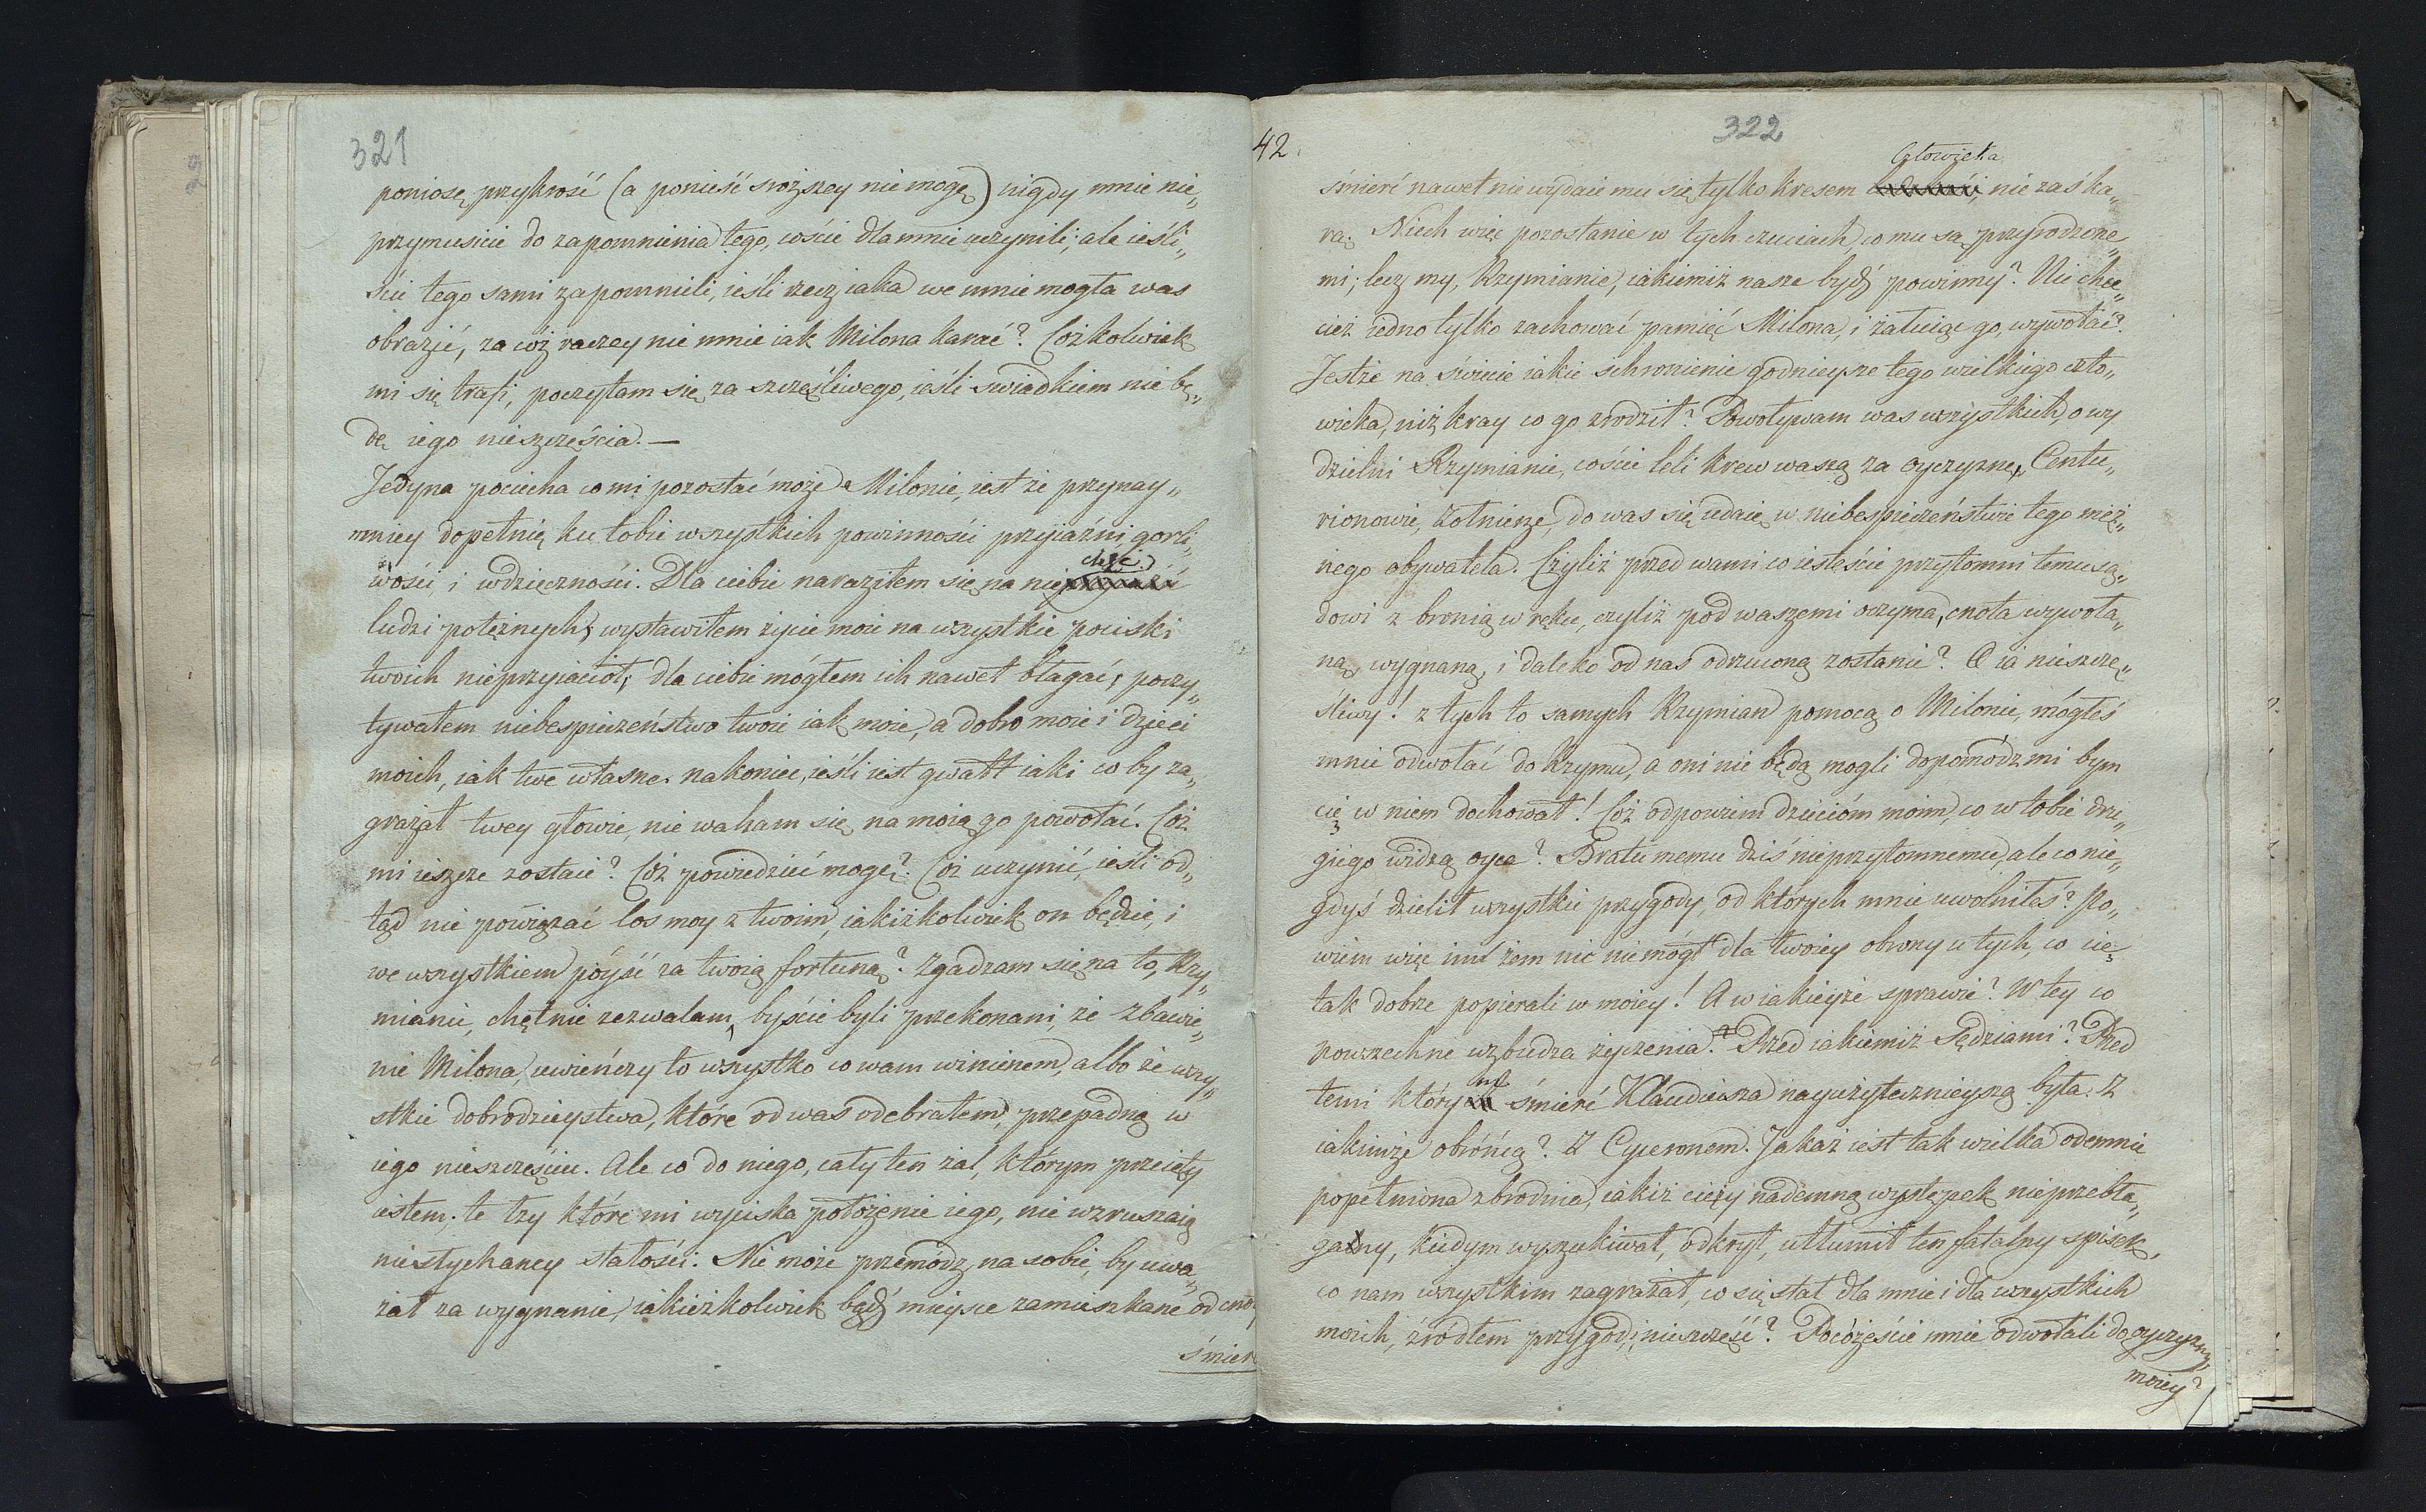 321
poniosę przykrość (a ponieść sroższey nie mogę) nigdy mnie nie„
przymusicie do zapomnienia tego, coście dla mnie uczynili; ale ieśli„
ście tego sami zapomnieli, ieśli rzecz iaka we mnie mogła was
obrazić, za cóż raczey nie mnie iak Milona karać? Cożkolwiek
mi się trafi, poczytam się za szczęśliwego, ieśli swiadkiem nie bę„
dę iego nieszczęścia. —
Jedyna pociecha co mi pozostać może Milonie, iest że przynay„
mniey dopełnię ku tobie wszystkich powinności przyiaźni gorli„
wości, i wdzięczności. Dla ciebie naraziłem się na niechęć
ludzi potężnych; wystawiłem życie moie na wszystkie pociski
twoich nieprzyiacioł; dla ciebie mógłem ich nawet błagać; poczy„
tywałem niebespieczeństwo twoie iak moie, a dobro moie i dzieci
moich, iak twe własne. nakoniec, ieśli iest gwałt iaki co by za„
grażał twey głowie, nie waham się na moią go powołać. Cóż
mi ieszcze zostaie? Cóż powiedzieć mogę? Coż uczynić, ieśli od„
tąd nie powiązać los moy z twoim, iakiżkolwiek on będzie, i
we wszystkiem póyść za twoią fortuną? Zgadzam się na to, Rzy„
mianie, chętnie zezwalam, byście byli przekonani, że zbawie„
nie Milona, uwieńczy to wszystko co wam winienem, albo że wszy„
stkie dobrodzieystwa, które od was odebrałem, przepadną w
iego nieszczęściu. Ale co do niego, cały ten żal, którym przeięty
iestem, te łzy które mi wyciska położenie iego, nie wzruszaią
niesłychaney stałości. Nie może przemódz na sobie, by uwa„
żał za wygnanie, iakieżkolwiek bądź mieysce zamieszkane od cno
śmier
42.
322
Człowieka
śmierć nawet nie wydaie mu się tylko kresem, nie zaś ka„
rą. Niech więc pozostanie w tych czuciach, co mu są przyrodzone„
mi; lecz my, Rzymianie, iakiemiż nasze bydź powinny? Nie chce„
cież iedno tylko zachować pamięć Milona, i żałuiąc go, wywołać?
Jestże na świecie iakie schronienie godnieysze tego wielkiego czło„
wieka, niż kray co go zrodził? Powoływam was wszystkich, o wy
dzielni Rzymianie, coście leli krew waszą za oyczyznę, Centu„
rionowie, żołnierze, do was się udaię w niebespieczeństwie tego męż„
nego obywatela. Czyliż przed wami co iesteście przytomni temu są„
dowi z bronią w ręku, czyliż pod waszemi oczyma, cnota wywoła„
ną, wygnaną, i daleko od nas odrzuconą zostanie? O ia nieszczę„
śliwy! z tych to samych Rzymian pomocą o Milonie, mógłeś
mnie odwołać do Rzymu, a oni nie będą mogli dopomódz mi bym
cię w niem dochował! Cóż odpowiem dzieciom moim, co w tobie dru„
giego widzą oyca? Bratu memu dziś nieprzytomnemu, ale co nie„
gdyś dzielił wszystkie przygody, od których mnie uwolniłeś? Po„
wiem więc im żem nic nie mógł dla twoiey obrony u tych, co cię
tak dobrze popierali w moiey! A w iakieyże sprawie? W tey co
powszechne wzbudza życzenia? Przed iakiemiż Sędziami? Przed
temi którym śmierć Klaudiusza nayużytecznieyszą była. Z
iakimże obrońcą? Z Cyceronem. Jakaż iest tak wielka odemnie
popełniona zbrodnia, iakiż cięży nademną występek nieprzebła„
gany, kiedym wyszukiwał, odkrył, utłumił ten fatalny spisek,
co nam wszystkim zagrażał, co się stał dla mnie i dla wszystkich
moich, źródłem przygod i nieszczęść? Pocóżeście mnie odwołali do oyczyzny
moiey?